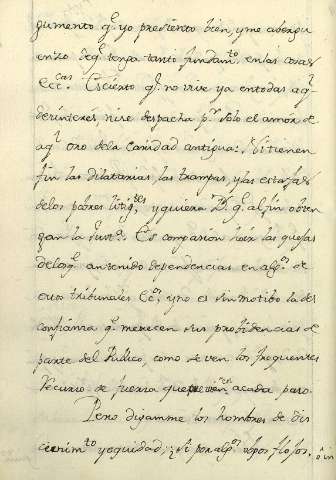 gumento q.e yo presiento bien, y me aberguenzo
de q.e tenga tanto fundam.to en las cosas
Ecc.cas Es cierto q.e no vive ya en todas aq.l
desinteres ni se despacha p.r solo el amor de
aq.l oro de la caridad antigua: ni tienen
fin las dilatorias, las trampas, y las estafas
de los pobres litig.tes, y quiera D.s q.e al fin obtengan
la Just.a Es compasion hoir las quejas
de los q.e an tenido dependencias en alg.os de
esos tribunales Ec.cos y no es sin motibo la desconfianza
q.e merecen sus probidencias de
parte del Publico, como se ven los frequentes
recursos de fuerza que se ven a cada paso.
Pero diganme los hombres de discernim.to
y equidad, ¿si por alg.os reposflosos, o in